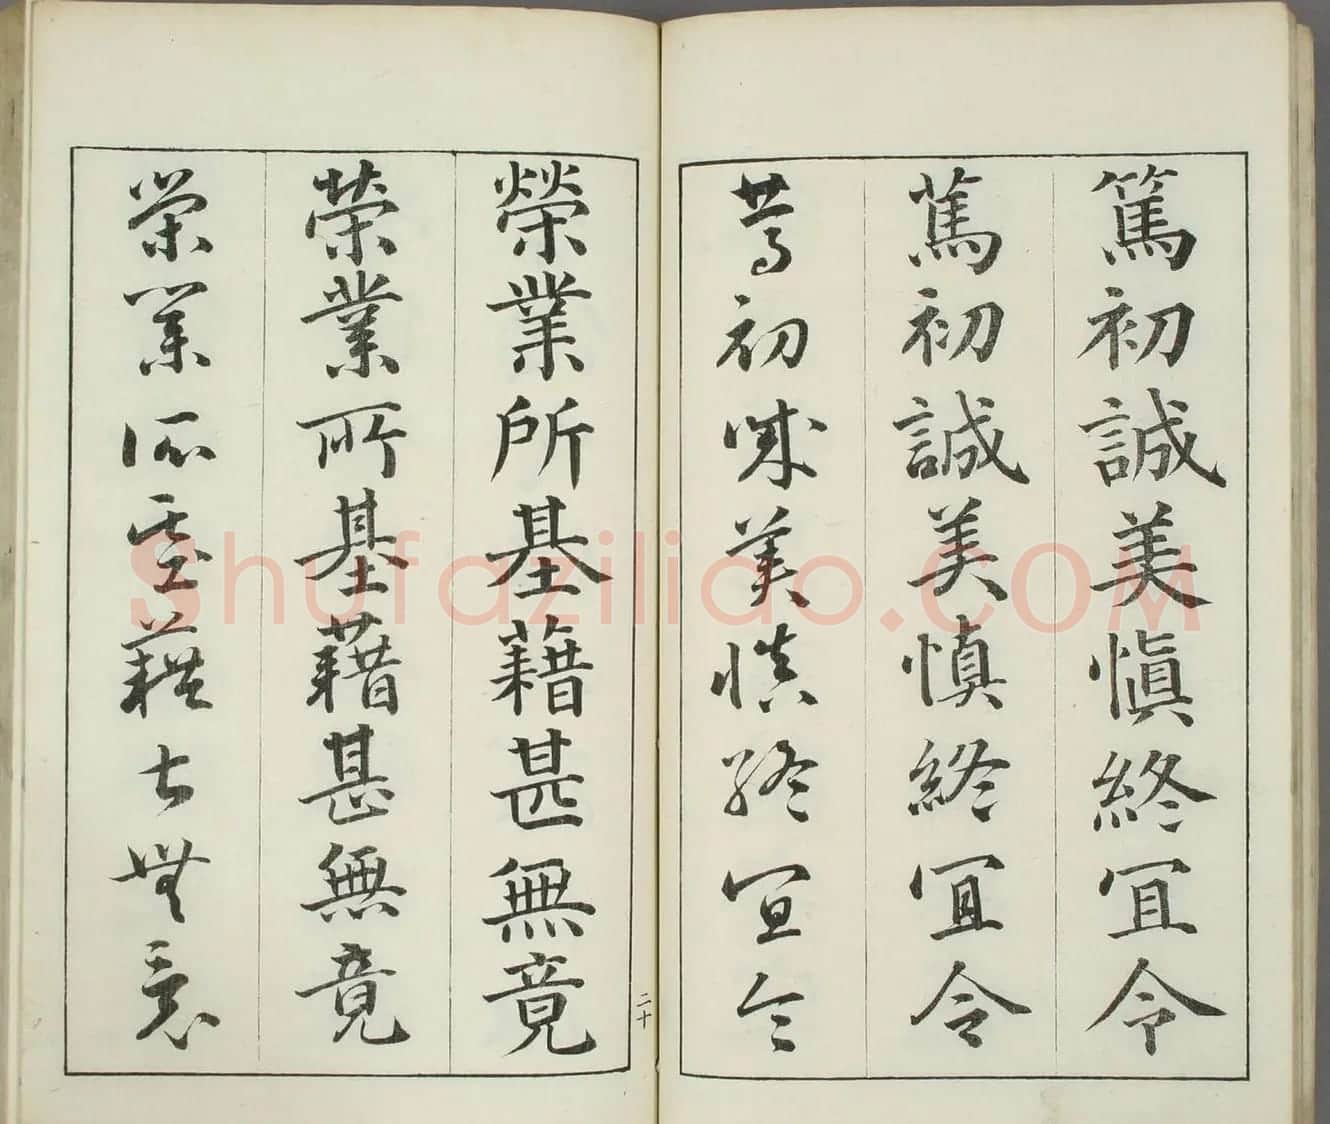 篤初誠美慎終冝令
篤初誠美慎終冝令
篤初誠美慎終冝令
榮業所基藉甚無竟
榮業所基藉甚無竟
榮業所基藉甚無竟
二十
Shufaziliao.COM